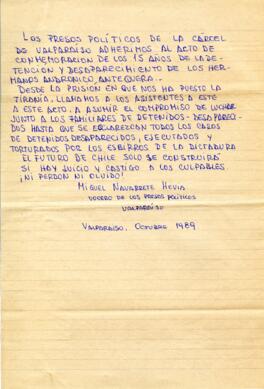 LOS PRESOS POLÍTICOS DE LA CARCEL
DE VALPARAISO ADHERIMOS AL ACTO DE
CONMEMORACION DE LOS 15 AÑOS DE LA DE-
TENCIÓN Y DESAPARECIMIENTO DE LOS HER-
MANOS ANDRONICO, ANTEQUERA.
DESDE LA PRISION EN QUE NOS HA PUESTO LA
TIRANÍA, LLAMAMOS A LOS ASISTENTES A ESTE
A ESTE ACTO. A ASUMIR EL COMPROMISO DE LUCHAR
JUNTO A LOS FAMILIARES DE DETENIDOS-DESAPARECI-
DOS HASTA QUE SE ESCLAREZCAN TODOS LOS CASOS
DE DETENIDOS DESAPARECIDOS, EJECUTADOS Y
TORTURADOS POR LOS ESBIRROS DE LA DICTADURA
EL FUTURO DE CHILE SOLO SE CONSTRUIRÁ
SI HAY JUICIO Y CASTIGO A LOS CULPABLES.
¡NI PERDON NI OLVIDO!
MIGUEL NAVARRETE HEVIA
VOCERO DE LOS PRESOS POLÍTICOS
VALPARAÍSO
VALPARAÍSO, OCTUBRE 1989